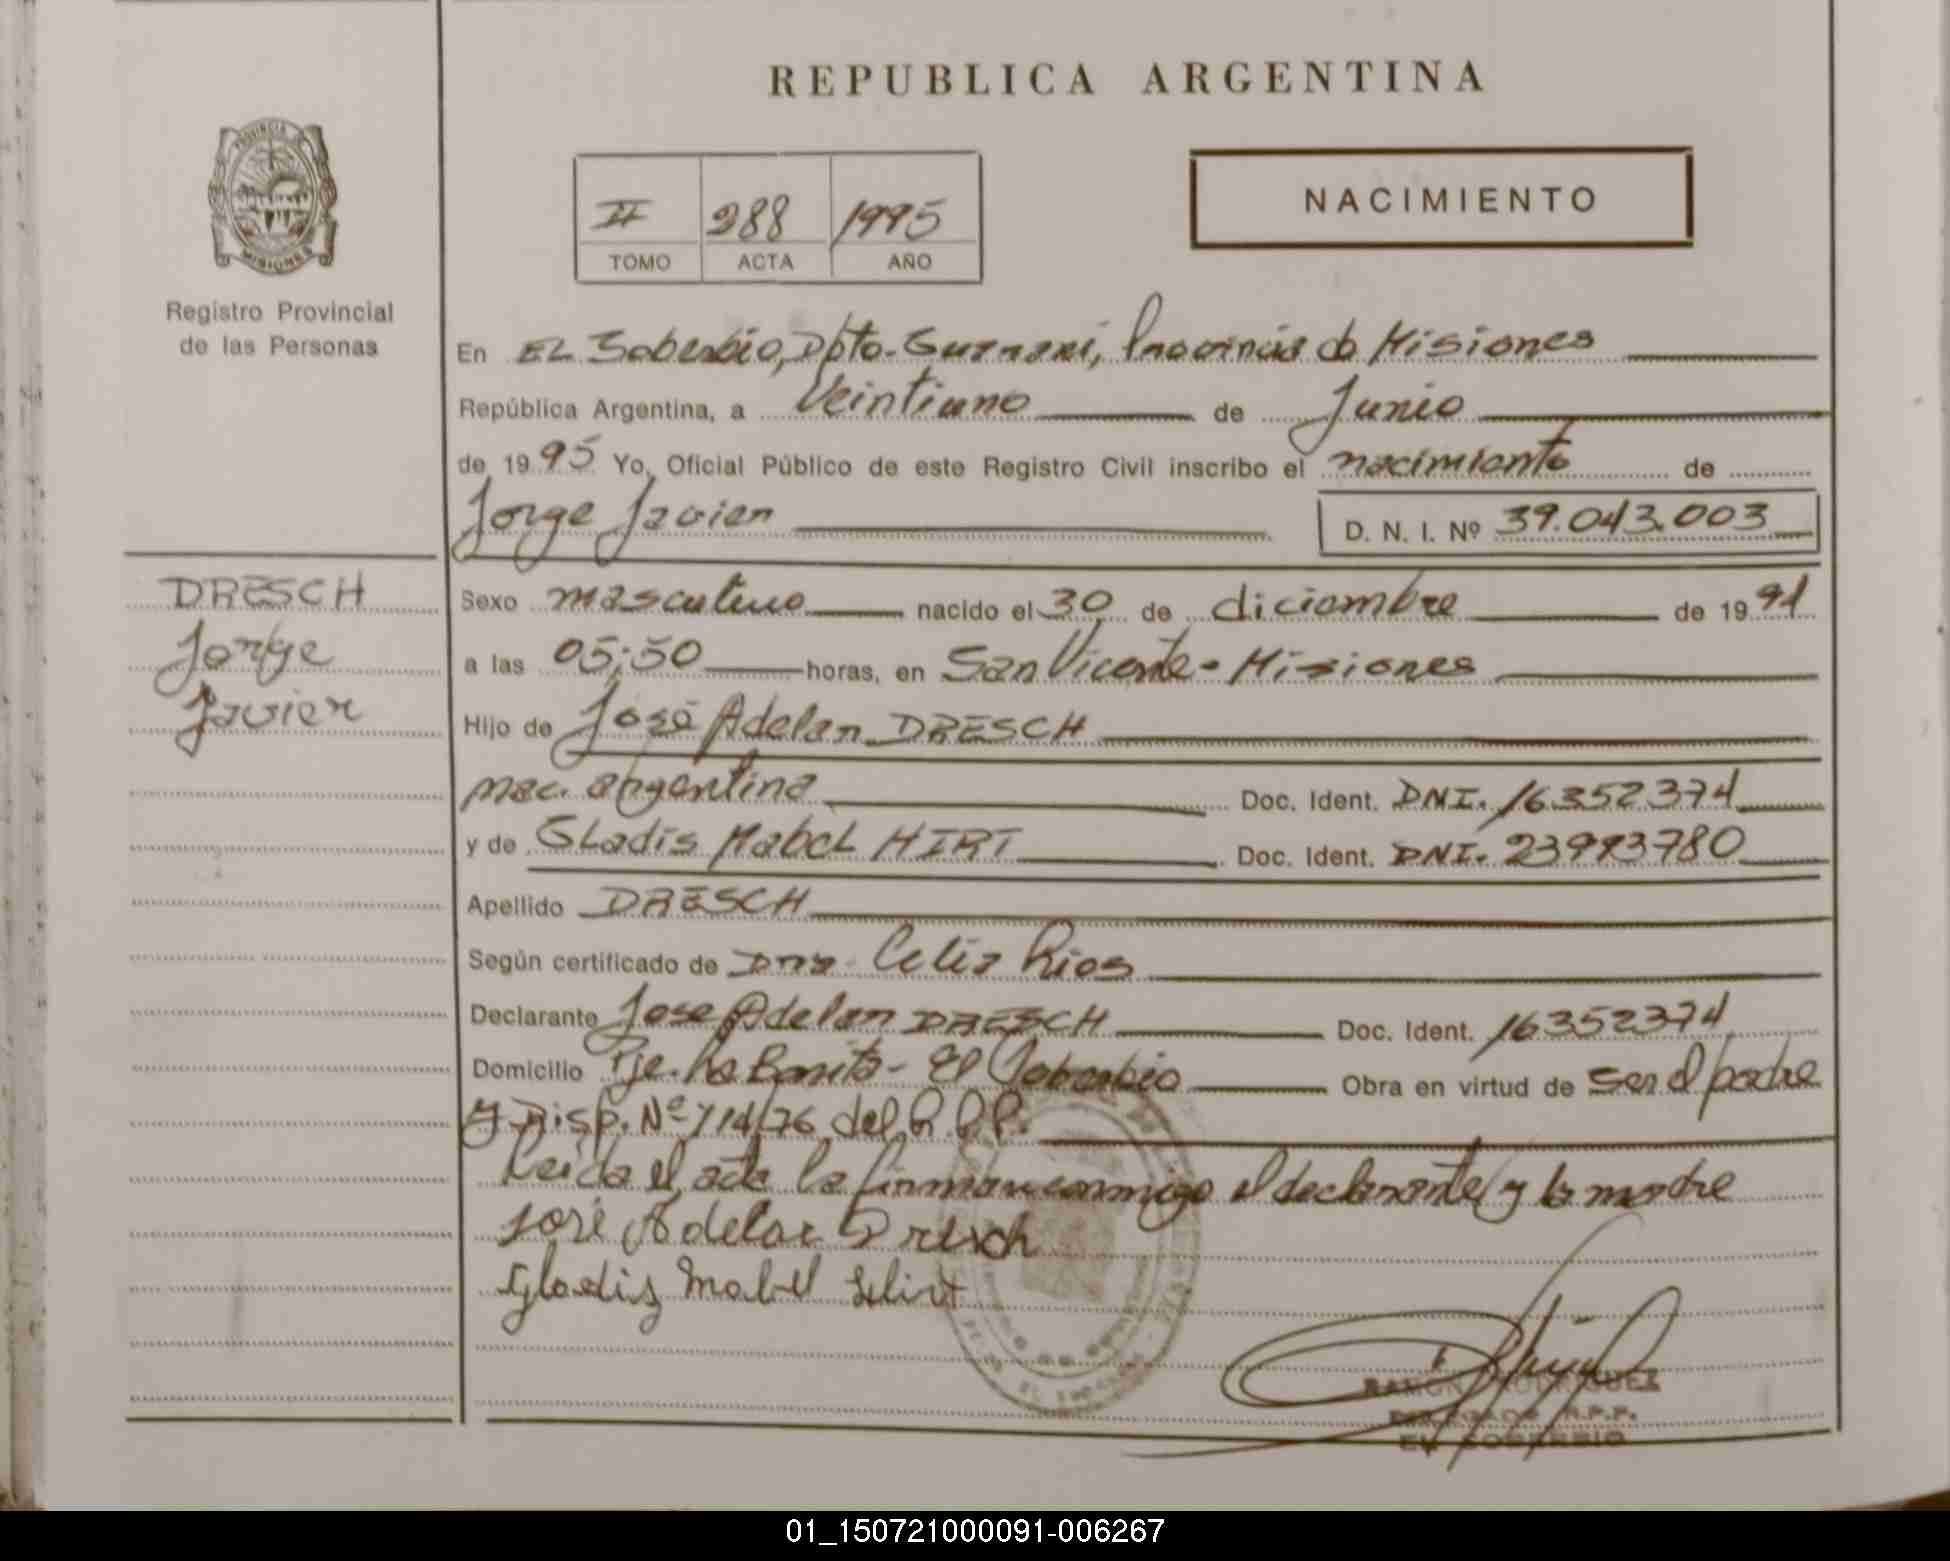 REPUBLICA ARGENTINA
PROVINCIA DE
MISIONES
Registro Provincial
de las Personas
II 288 1995
TOMO ACTA AÑO
NACIMIENTO
En EL Soberbio, Dpto. Guarani, Provincia de Misiones
República Argentina, a Veintiuno de Junio
de 1995 Yo, Oficial Público de este Registro Civil inscribo el nacimiento de
Jorge Javier
D. N. I. Nº 39.043.003
DRESCH
Jorge
Javier
Sexo masculino nacido el 30 de diciembre de 1991
a las 05:50 horas, en San Vicente - Misiones
Hijo de José Adelar DRESCH
nac. argentina Doc. Ident. DNI. 16352374
y de GLadis MabeL HIRT Doc. Ident. DNI. 23993780
Apellido DRESCH
Según certificado de Dra. Celia Rios
Declarante Jose Adelar DRESCH Doc. Ident. 16352374
Domicilio Pje. La Bonita - El Soberbio Obra en virtud de ser el padre
y Disp. Nº 714/76 del R.P.P.
Leida el acta la firman conmigo el declarante y la madre
José Adelar Dresch
Gladis Mabel Hirt
RAMON RODRIGUEZ
DELEGADO R.P.P.
EL SOBERBIO
01_150721000091-006267